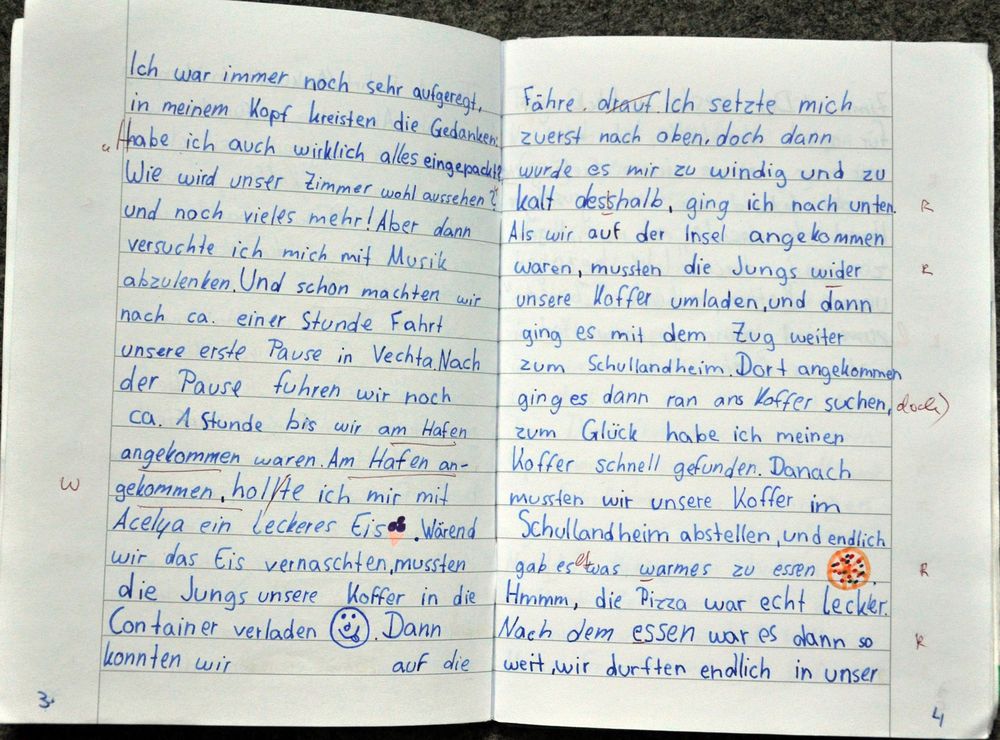 Ich war immer noch sehr aufgeregt,
in meinem Kopf kreisten die Gedanken:
„Habe ich auch wirklich alles eingepackt?
Wie wird unser Zimmer wohl aussehen?"
und noch vieles mehr! Aber dann
versuchte ich mich mit Musik
abzulenken. Und schon machten wir
nach ca. einer Stunde Fahrt
unsere erste Pause in Vechta. Nach
der Pause fuhren wir noch
ca. 1 Stunde bis wir am Hafen
angekommen waren. Am Hafen an-
W
gekommen, hollte ich mir mit
Acelya ein leckeres Eis. Wärend
wir das Eis vernaschten, mussten
die Jungs unsere Koffer in die
Container verladen. Dann
konnten wir auf die
3.
Fähre. drauf. Ich setzte mich
zuerst nach oben, doch dann
wurde es mir zu windig und zu
kalt desshalb, ging ich nach unten. R
Als wir auf der Insel angekommen
waren, mussten die Jungs wider R
unsere Koffer umladen, und dann
ging es mit dem Zug weiter
zum Schullandheim. Dort angekommen
ging es dann ran ans Koffer suchen, doch)
zum Glück habe ich meinen
Koffer schnell gefunden. Danach
mussten wir unsere Koffer im
Schullandheim abstellen, und endlich
gab es etwas warmes zu essen. R
Hmmm, die Pizza war echt lecker.
Nach dem essen war es dann so R
weit, wir durften endlich in unser
4